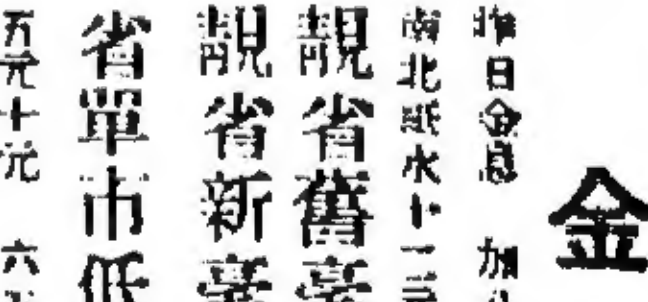 金
昨日金息 加
南北紙水十一三
靚省舊毫
靚省新毫
省單市低
五元十元 六